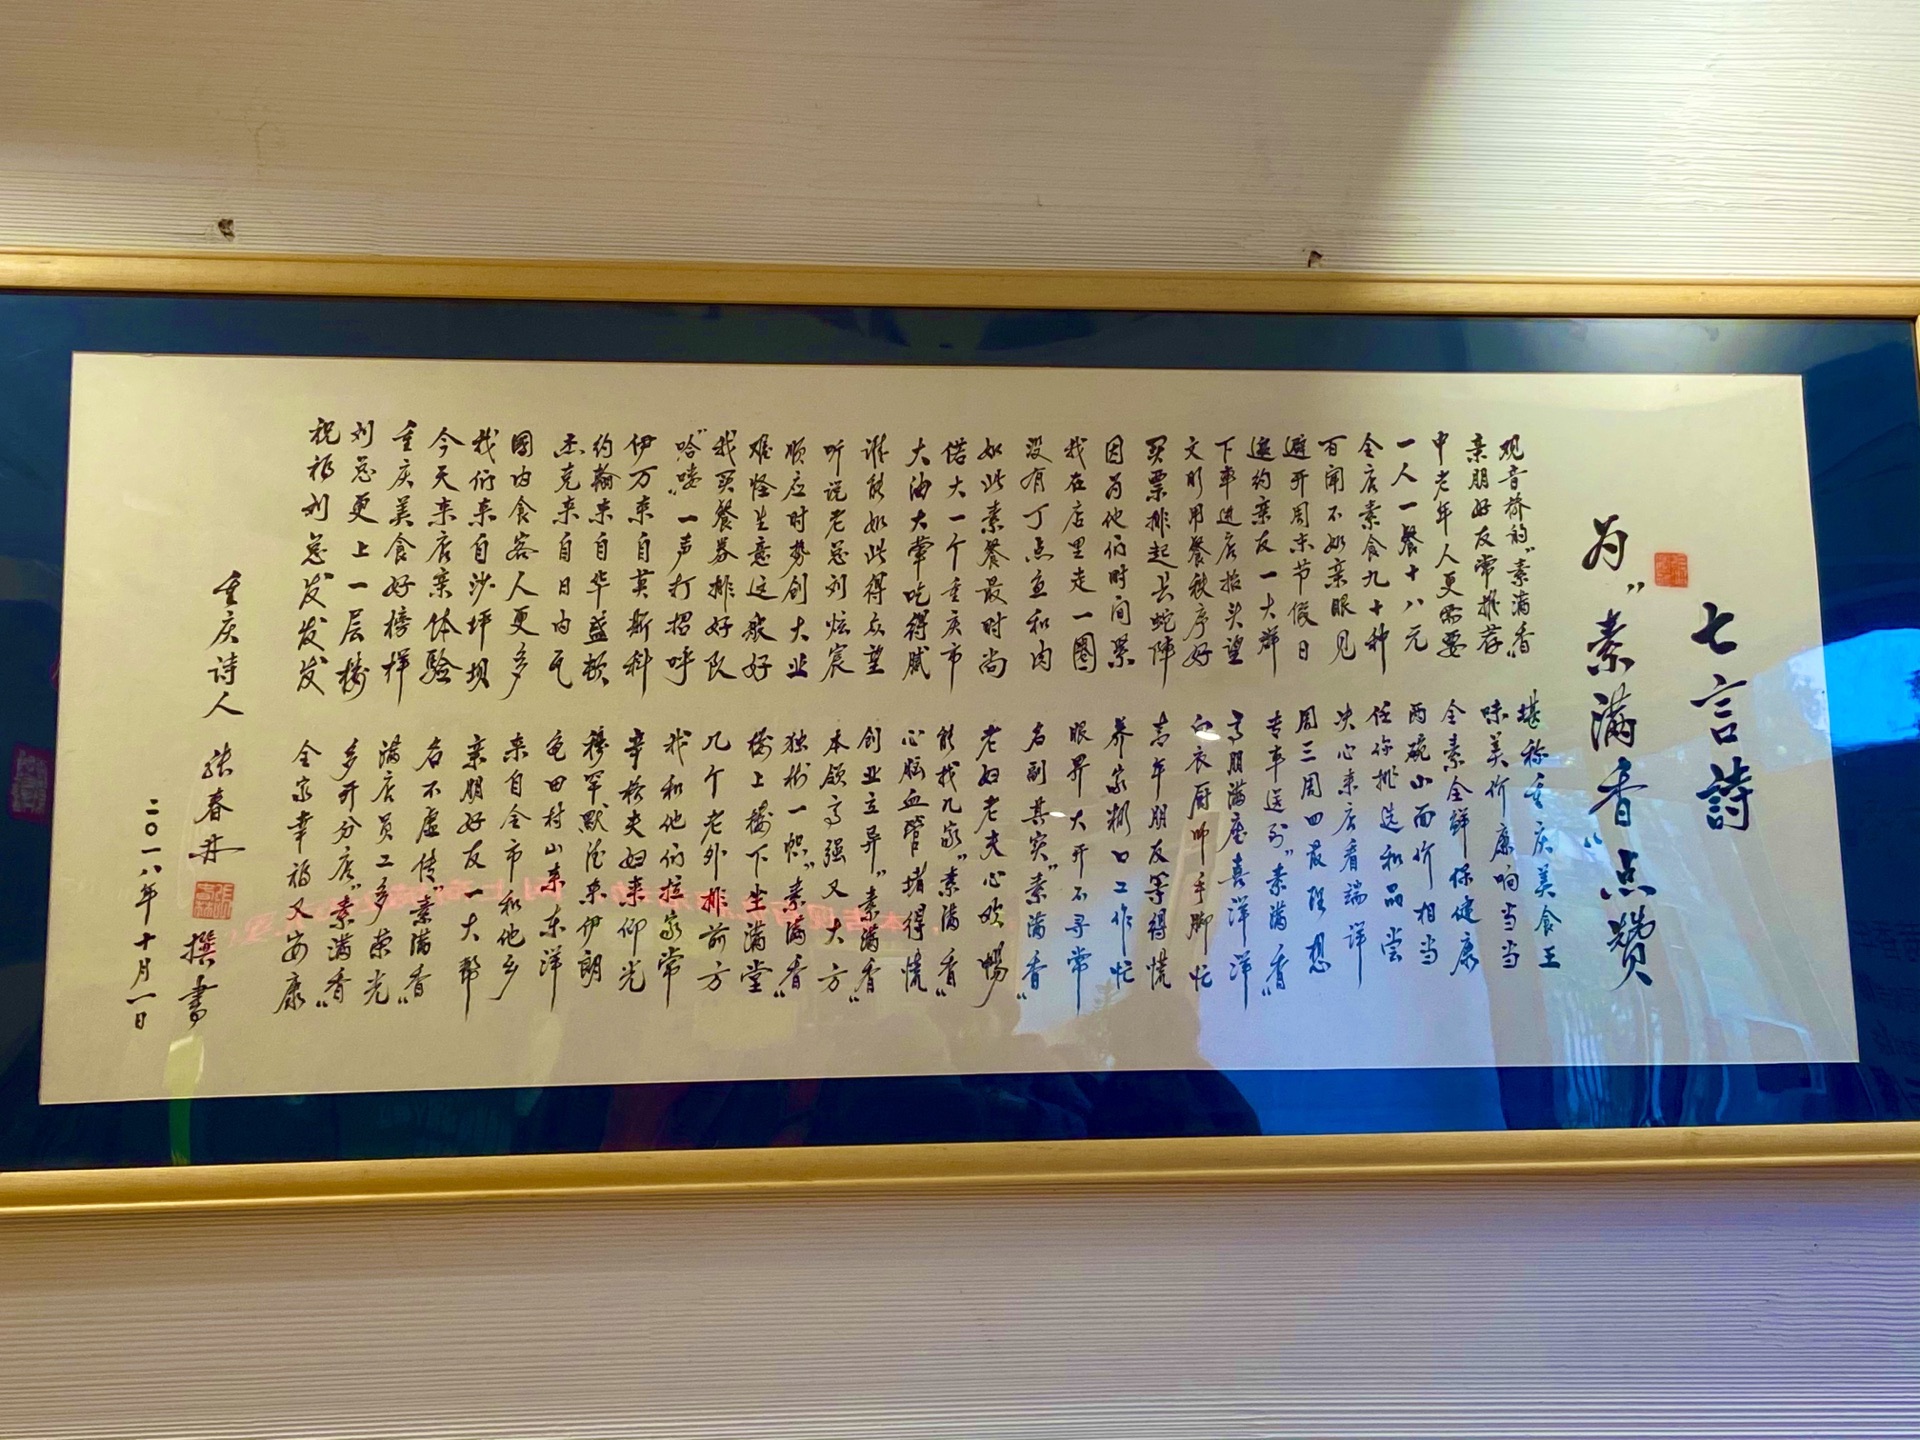 七言詩
为"素满香"点赞
观音桥的"素满香" 堪称重庆美食王
亲朋好友常推荐 味美价廉响当当
中老年人更需要 全素全鲜保健康
一人一餐十八元 两碗小面价相当
全店素食九十种 任你挑选和品尝
百闻不如亲眼见 决心来店看端详
避开周末节假日 周三周四最理想
邀约亲友一大群 专车送到"素满香"
下车进店抬头望 高朋满座喜洋洋
文明用餐秩序好 白衣厨师手脚忙
买票排起长蛇阵 青年朋友等得慌
因为他们时间紧 养家糊口工作忙
我在店里走一圈 眼界大开不寻常
没有丁点鱼和肉 名副其实"素满香"
如此素餐最时尚 老妇老夫心欢畅
偌大一个重庆市 能找几家"素满香"
大油大荤吃得腻 心脑血管堵得慌
谁能如此得众望 创业立异"素满香"
听说老总刘炫宸 本领高强又大方
顺应时势创大业 独树一帜"素满香"
难怪生意这般好 楼上楼下坐满堂
我买餐券排好队 几个老外排前方
"哈喽"一声打招呼 我和他们拉家常
伊万来自莫斯科 辛格夫妇来仰光
约翰来自华盛顿 穆罕默德来伊朗
杰克来自日内瓦 龟田村山来东洋
國内食客人更多 来自全市和他乡
我们来自沙坪坝 亲朋好友一大帮
今天来店亲体验 名不虚传"素满香"
重庆美食好榜样 满店员工多荣光
刘总更上一层楼 多开分店"素满香"
祝福刘总发发发 全家幸福又安康
重庆诗人 张春 撰書
二〇一八年十月一日